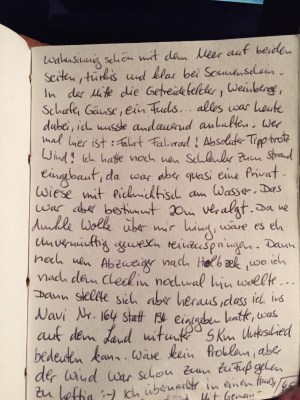 Wahnsinnig schön mit dem Meer auf beiden
Seiten, türkis und klar bei Sonnenschein.
In der Mitte die Getreidefelder, Weinberge,
Schafe, Gänse, ein Fuchs... alles war heute
dabei, ich musste andauernd anhalten. Wer
mal hier ist: Fahrt Fahrrad! Absoluter Tipp trotz
Wind! Ich hatte noch nen Schlenker zum Strand
eingebaut, da war aber quasi eine Privat-
wiese mit Picknicktisch am Wasser. Das
war aber bestimmt 20m veralgt. Da ne
dunkle Wolke über mir hing, wäre es eh
unvernünftig gewesen reinzuspringen. Dann
noch nen Abzweiger nach, wo ich
nach dem Checkin nochmal hin wollte...
Dann stellte sich aber heraus, dass ich ins
Navi Nr. 164 statt eingegeben hatte, was
auf dem Land mitunter 5 km Unterschied
bedeuten kann. Wäre kein Problem, aber
der Wind war schon zum zu Fuß gehen
zu heftig :-) Ich übernachte in einem
Mit